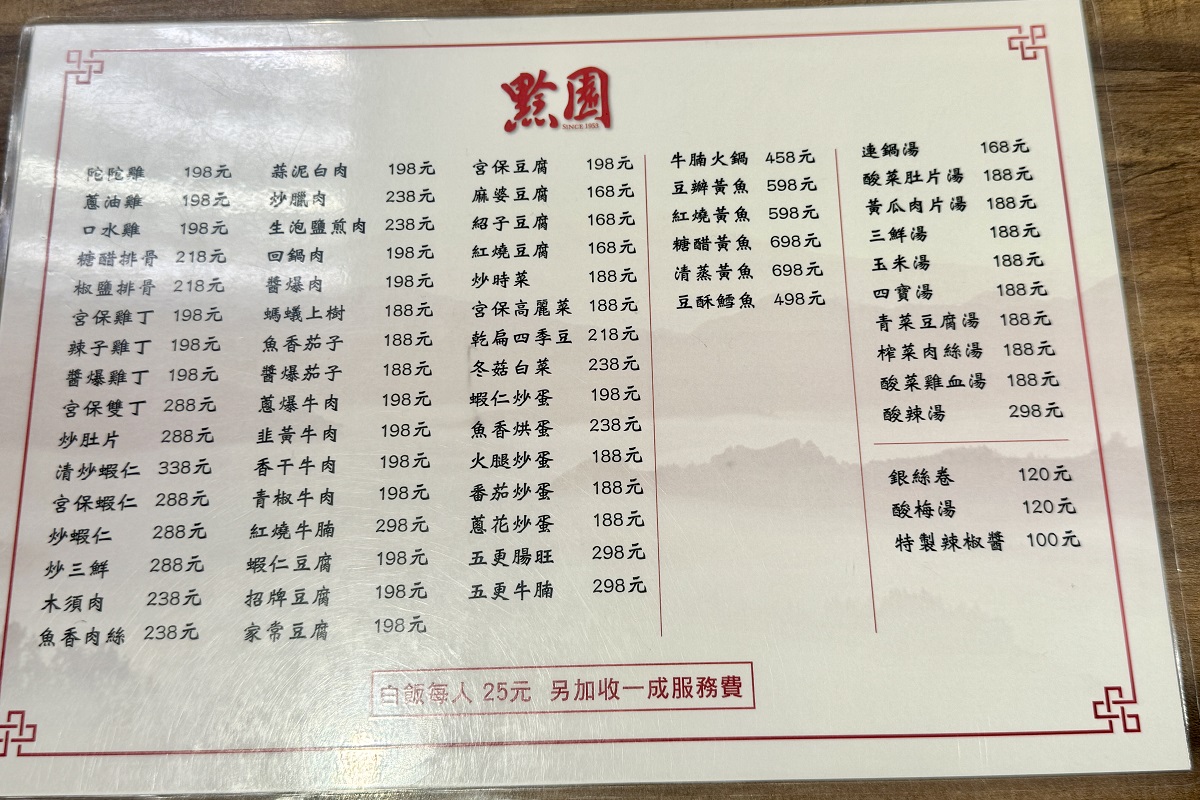 黔園
SINCE 1953
陀陀雞 198元
蔥油雞 198元
口水雞 198元
糖醋排骨 218元
椒鹽排骨 218元
宮保雞丁 198元
辣子雞丁 198元
醬爆雞丁 198元
宮保雙丁 288元
炒肚片 288元
清炒蝦仁 338元
宮保蝦仁 288元
炒蝦仁 288元
炒三鮮 288元
木須肉 238元
魚香肉絲 238元
蒜泥白肉 198元
炒臘肉 238元
生泡鹽煎肉 238元
回鍋肉 198元
醬爆肉 198元
螞蟻上樹 188元
魚香茄子 188元
醬爆茄子 188元
蔥爆牛肉 198元
韭黃牛肉 198元
香干牛肉 198元
青椒牛肉 198元
紅燒牛腩 298元
蝦仁豆腐 198元
招牌豆腐 198元
家常豆腐 198元
宮保豆腐 198元
麻婆豆腐 168元
紹子豆腐 168元
紅燒豆腐 168元
炒時菜 188元
宮保高麗菜 188元
乾扁四季豆 218元
冬菇白菜 238元
蝦仁炒蛋 198元
魚香烘蛋 238元
火腿炒蛋 188元
番茄炒蛋 188元
蔥花炒蛋 188元
五更腸旺 298元
五更牛腩 298元
牛腩火鍋 458元
豆瓣黃魚 598元
紅燒黃魚 598元
糖醋黃魚 698元
清蒸黃魚 698元
豆酥鱈魚 498元
連鍋湯 168元
酸菜肚片湯 188元
黃瓜肉片湯 188元
三鮮湯 188元
玉米湯 188元
四寶湯 188元
青菜豆腐湯 188元
榨菜肉絲湯 188元
酸菜雞血湯 188元
酸辣湯 298元
銀絲卷 120元
酸梅湯 120元
特製辣椒醬 100元
白飯每人 25元 另加收一成服務費